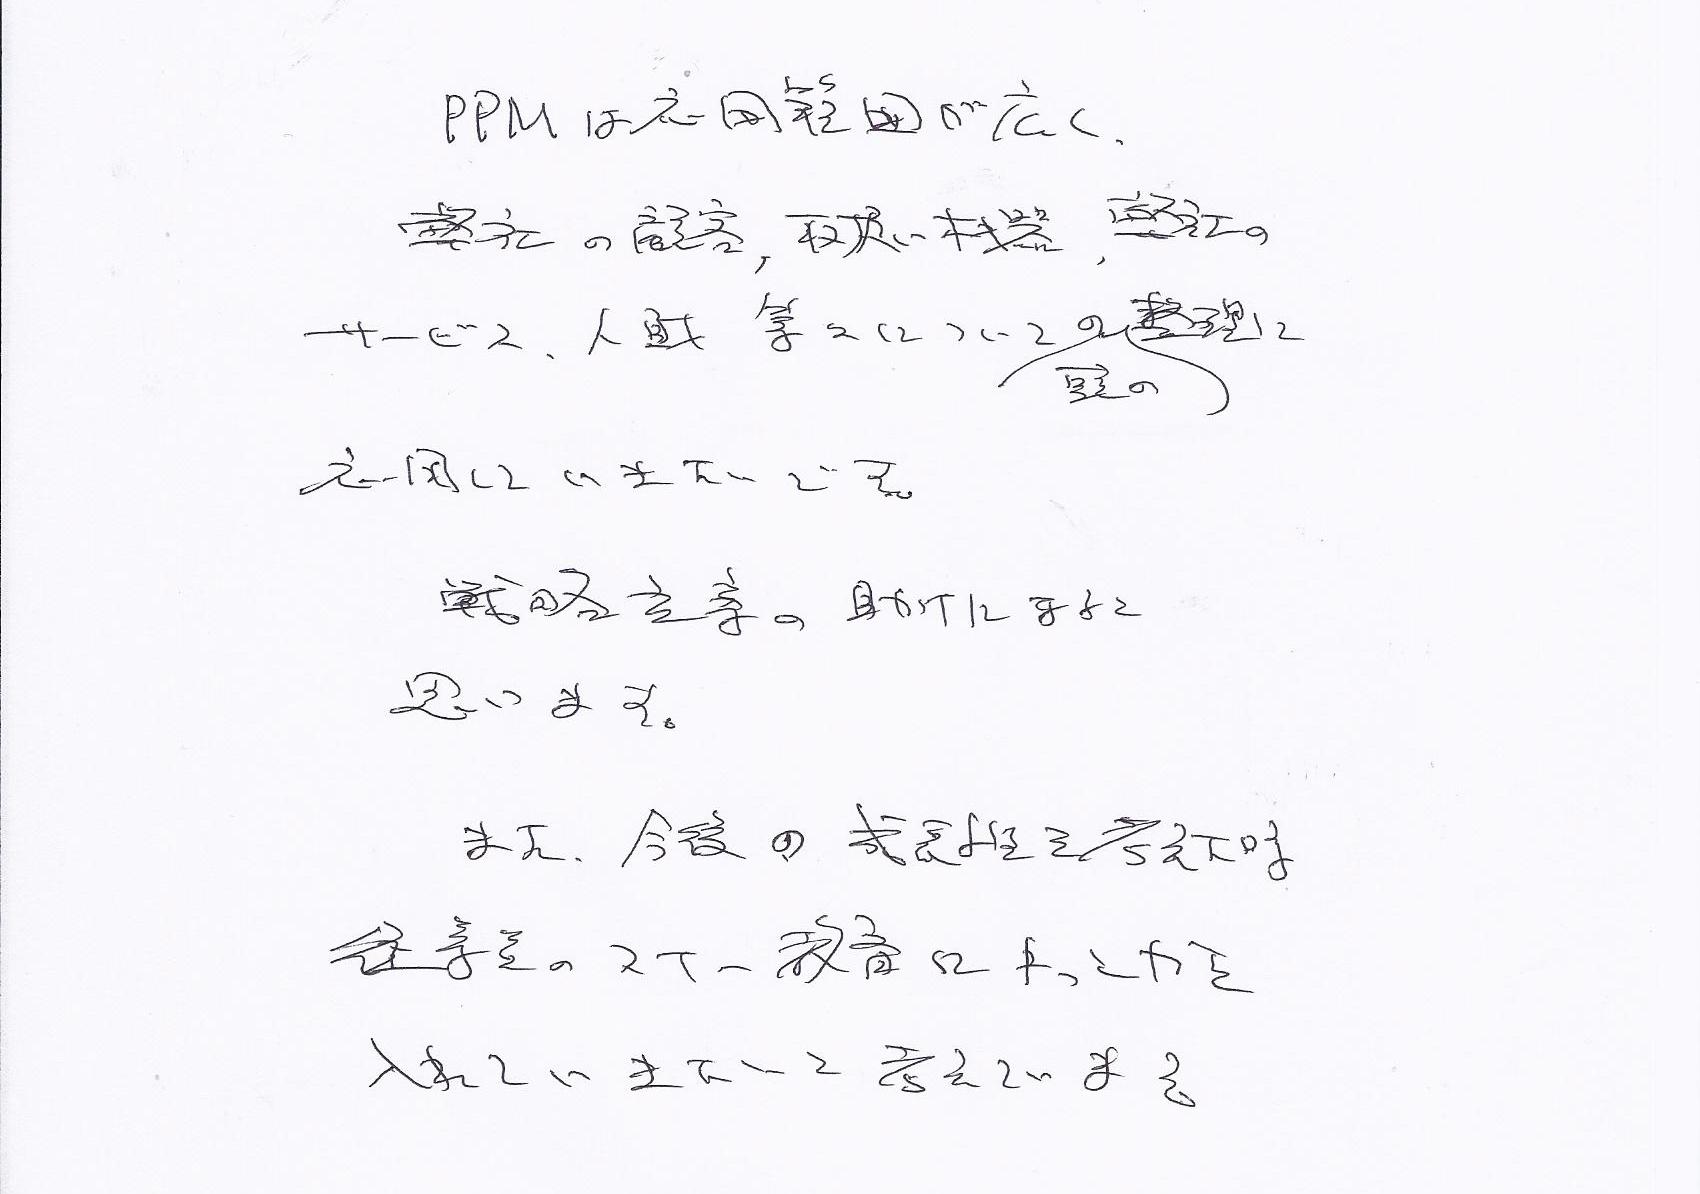 PPMは応用範囲が広く、
弊社の顧客,取扱い機器,弊社の
サービス、人財 等々についての整理に
現の
応用していきたいです。
戦略立案の助けになると
思います。
また、今後の成長性を考えた時
従業員のスキル教育にもっと力を
入れていきたいと考えています